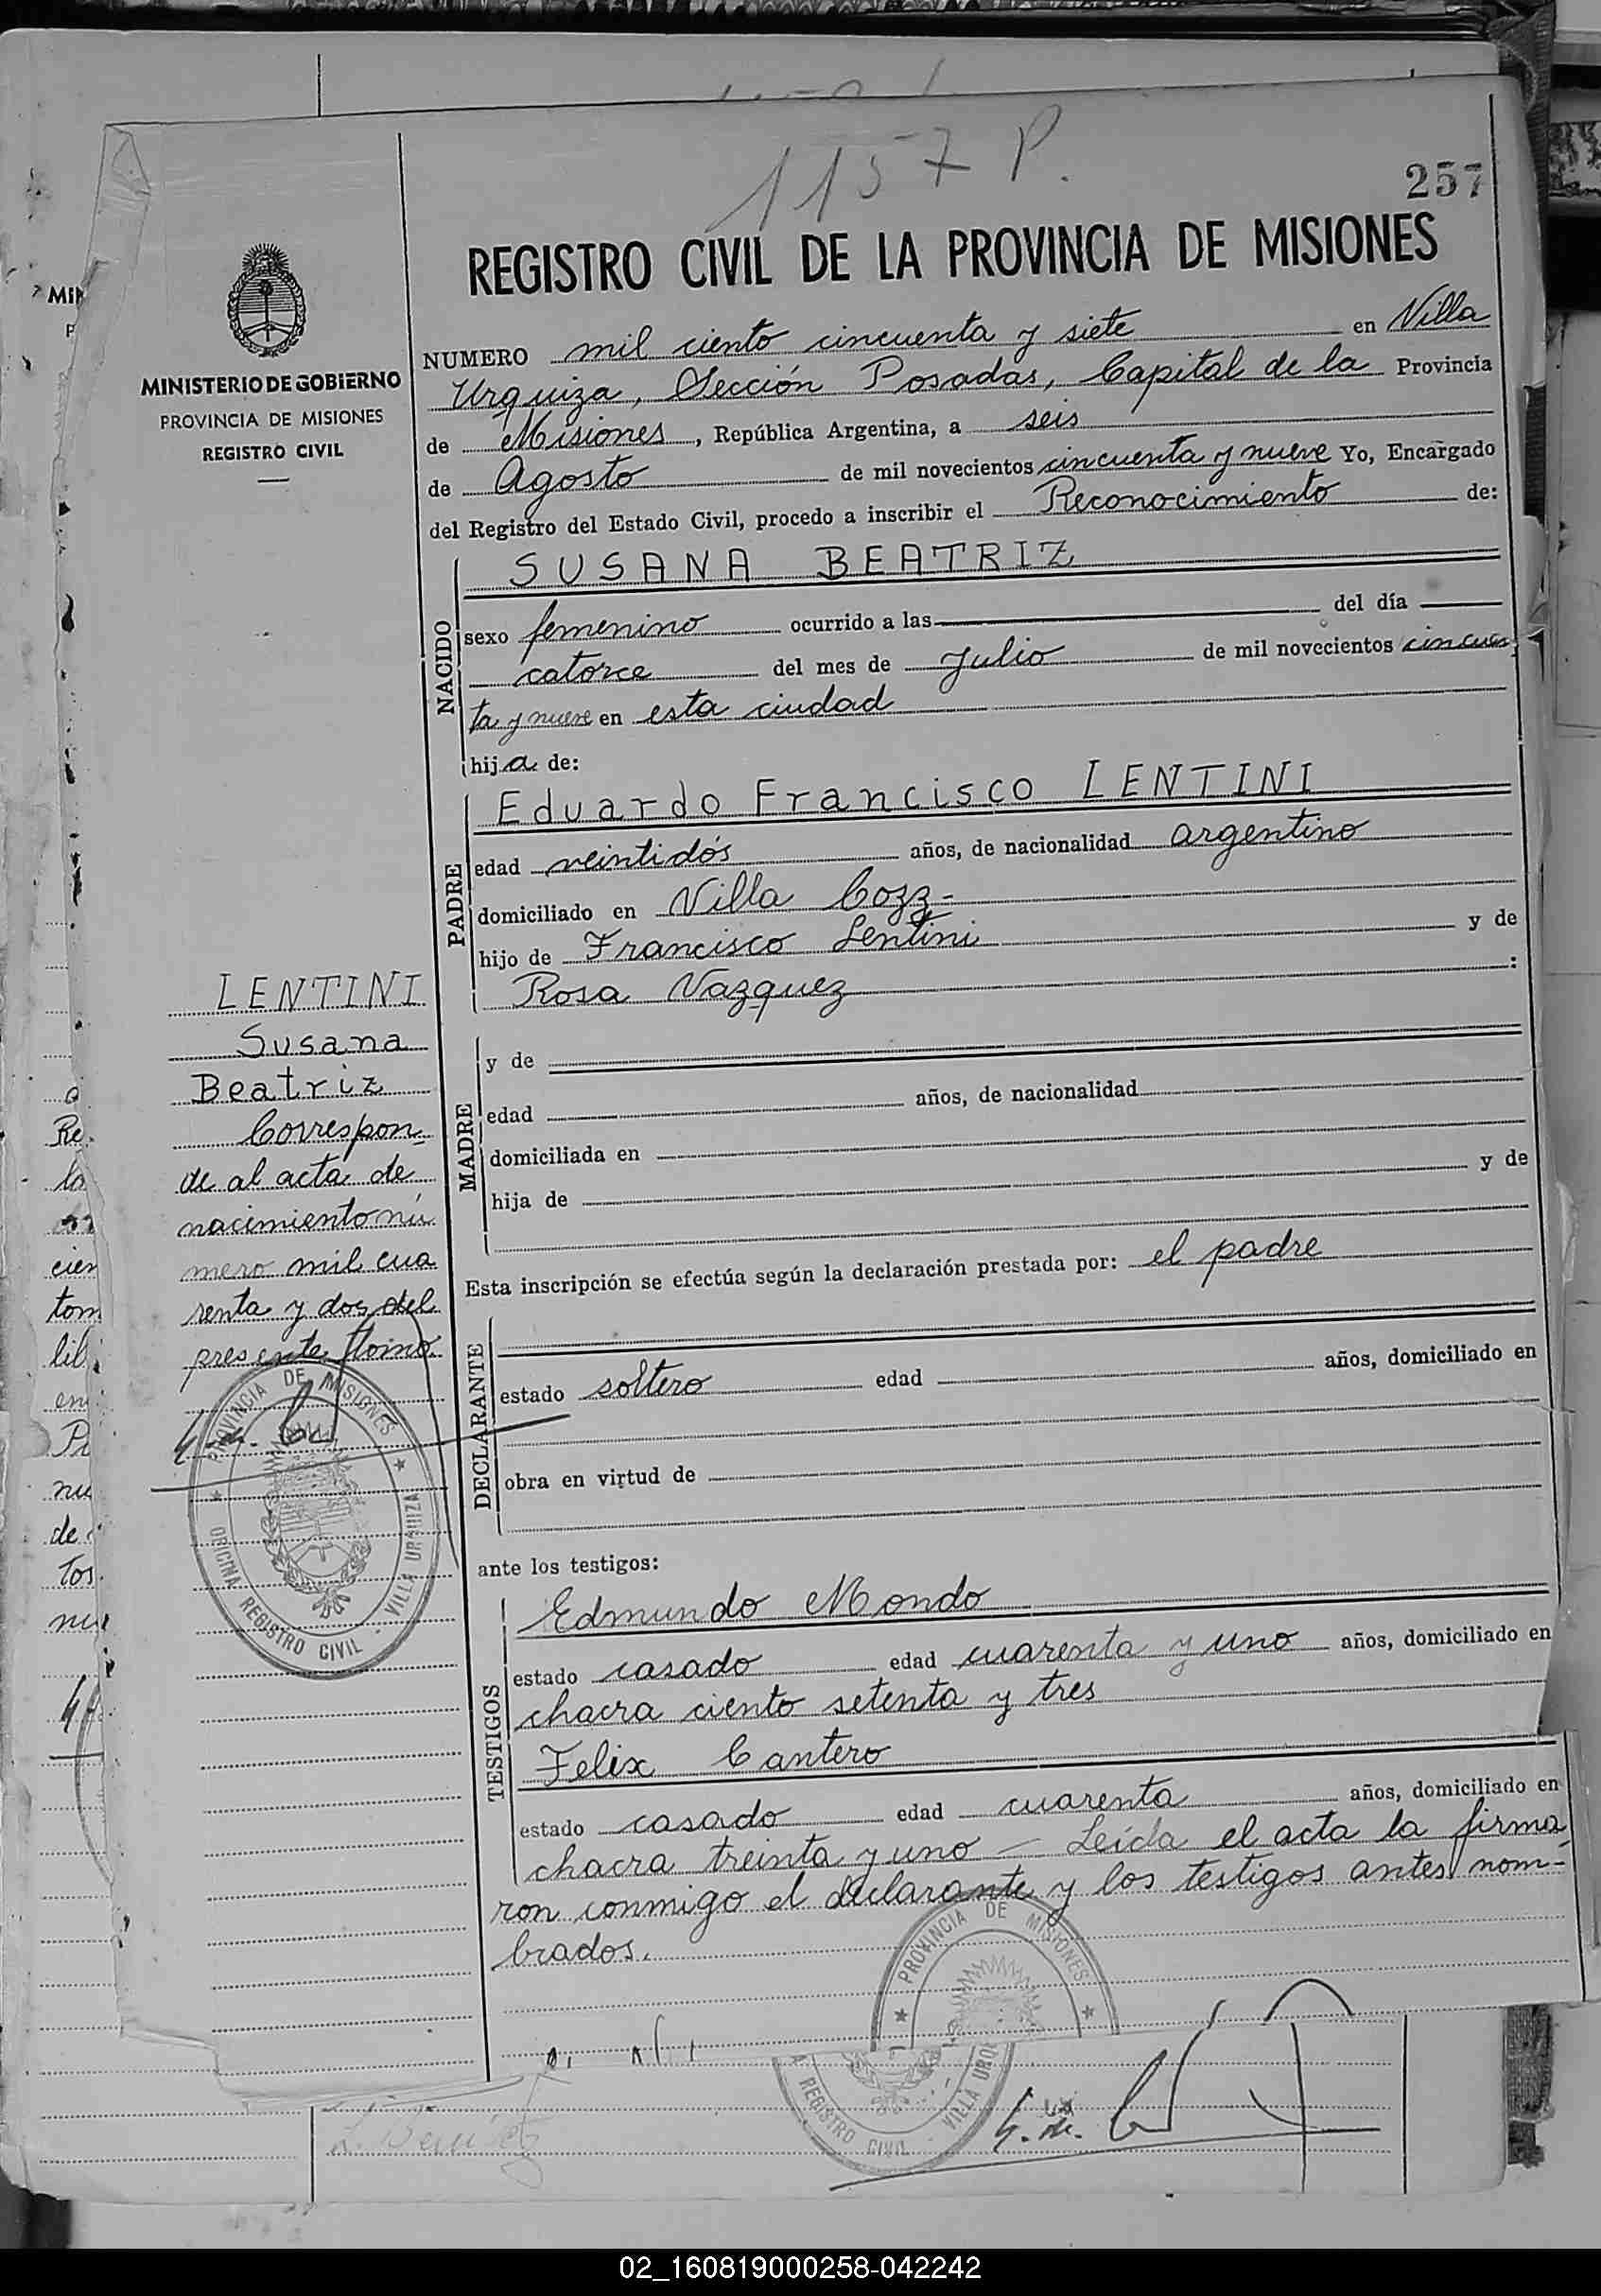 1157 P.
257
MINISTERIO DE GOBIERNO
PROVINCIA DE MISIONES
REGISTRO CIVIL
REGISTRO CIVIL DE LA PROVINCIA DE MISIONES
NUMERO mil ciento cincuenta y siete en Villa
Urquiza, Sección Posadas, Capital de la Provincia
de Misiones, República Argentina, a seis
de Agosto de mil novecientos cincuenta y nueve Yo, Encargado
del Registro del Estado Civil, procedo a inscribir el Reconocimiento de:
NACIDO
SUSANA BEATRIZ
sexo femenino ocurrido a las del día
catorce del mes de Julio de mil novecientos cincuen
ta y nueve en esta ciudad
hija de:
PADRE
Eduardo Francisco LENTINI
edad veintidós años, de nacionalidad argentino
domiciliado en Villa Cozz-
hijo de Francisco Lentini y de
Rosa Vazquez :
MADRE
y de
edad años, de nacionalidad
domiciliada en
hija de y de
Esta inscripción se efectúa según la declaración prestada por: el padre
DECLARANTE
estado soltero edad años, domiciliado en
obra en virtud de
ante los testigos:
TESTIGOS
Edmundo Mondo
estado casado edad cuarenta y uno años, domiciliado en
chacra ciento setenta y tres
Felix Cantero
estado casado edad cuarenta años, domiciliado en
chacra treinta y uno - Leída el acta la firma
ron conmigo el declarante y los testigos antes nom-
brados.
LENTINI
Susana
Beatriz
Correspon_
de al acta de
nacimiento nú
mero mil cua
renta y dos del
presente
PROVINCIA DE MISIONES
OFICINA REGISTRO CIVIL VILLA URQUIZA
PROVINCIA DE MISIONES
REGISTRO CIVIL
02_160819000258-042242